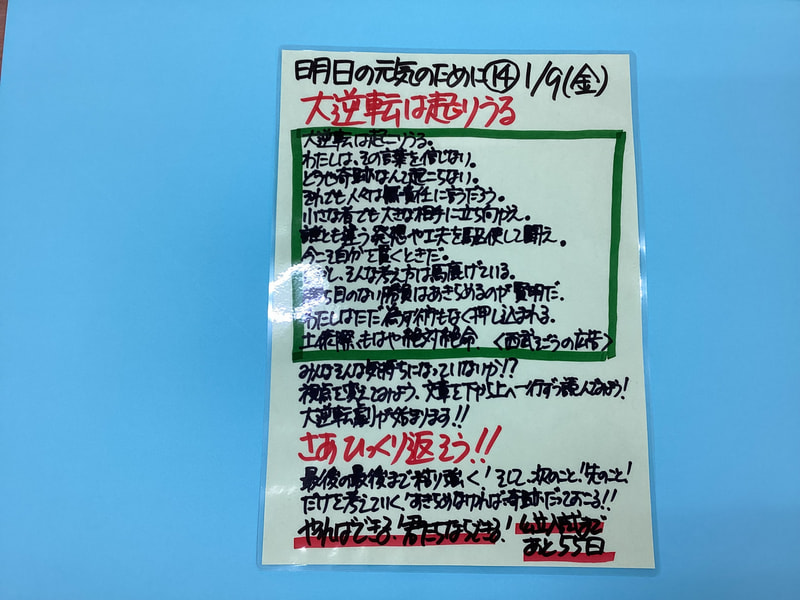 明日の元気のために⑭ 1/9(金)
大逆転は起りうる
大逆転は起こりうる。
わたしは、その言葉を信じない。
どうせ奇跡なんて起こらない。
それでも人々は無責任に言うだろう。
小さな者でも大きな相手に立ち向かえ。
誰とも違う発想や工夫を駆使して闘え。
今こそ自分を貫くときだ。
しかし、そんな考え方は馬鹿げている。
勝ち目のない勝負はあきらめるのが賢明だ。
わたしはただ為す術もなく押し込まれる。
土俵際、もはや絶対絶命。 <西武そごうの広告>
みんなそんな気持ちになっていないか!?
視点を変えてみよう、文章を下から上へ一行ずつ読んでみよう!
大逆転劇が始まります!!
さあひっくり返そう!!
最後の最後まで粘り強く!そして、次のこと!先のこと!
だけを考えていく!あきらめなければ奇跡だっておこる!!
やればできる!君たちならできる! 公立入試まで
あと55日